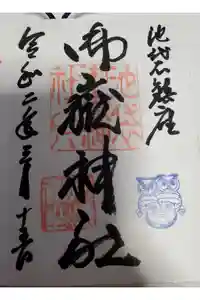 池袋鎮座
御嶽神社
令和二年三月十五日